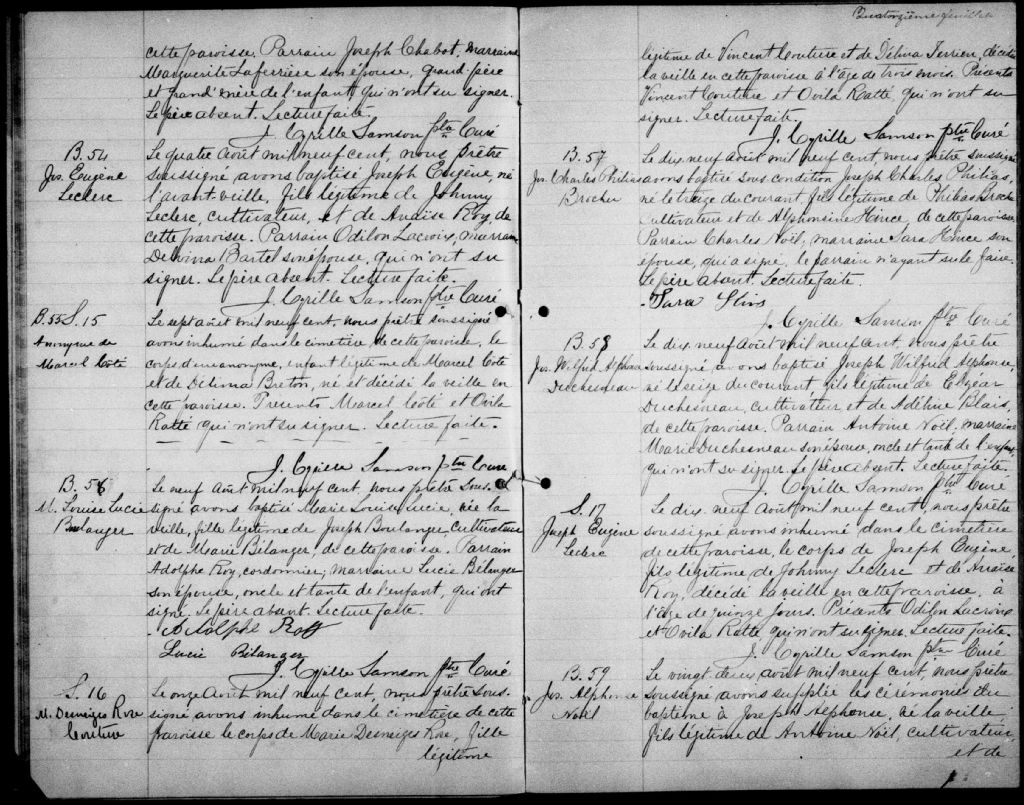 cette paroisse. Parrain Joseph Chabot, marraine
Marguerite Laferrière son épouse, grand-père
et grand'mère de l'enfant, qui n'ont su signer.
Le père absent. Lecture faite.
J. Cyrille Samson ptre Curé
B. 54
Jos. Eugène
Leclerc
Le quatre Août mil neuf cent, nous prêtre
soussigné avons baptisé Joseph Eugène, né
l'avant-veille, fils légitime de Johnny
Leclerc, cultivateur, et de Anaïse Roy de
cette paroisse. Parrain Odilon Lacroix, marraine
Delvina Bartel son épouse, qui n'ont su
signer. Le père absent. Lecture faite.
J. Cyrille Samson ptre Curé
B. 55 S. 15
Anonyme de
Marcel Coté
Le sept août mil neuf cent, nous prêtre soussigné
avons inhumé dans le cimetière de cette paroisse, le
corps d'un anonyme, enfant légitime de Marcel Coté
et de Délima Breton, né et décédé la veille en
cette paroisse. Présents Marcel Coté et Ovila
Ratté qui n'ont su signer. Lecture faite.
J. Cyrille Samson ptre Curé
B. 56
M. Louise Lucie
Boulanger
Le neuf Août mil neuf cent, nous prêtre sous-
signé avons baptisé Marie Louise Lucie, née la
veille, fille légitime de Joseph Boulanger, cultivateur
et de Marie Bélanger, de cette paroisse. Parrain
Adolphe Roy, cordonnier, marraine Lucie Bélanger
son épouse, oncle et tante de l'enfant, qui ont
signé. Le père absent. Lecture faite.
Adolphe Roy
Lucie Bélanger
J. Cyrille Samson ptre Curé
S. 16
M. Desneiges Rose
Couture
Le onze Août mil neuf cent, nous prêtre sous-
signé avons inhumé dans le cimetière de cette
paroisse le corps de Marie Desneiges Rose, fille
légitime
Quatorzième feuillet
légitime de Vincent Couture et de Délima Terrien, décédée
la veille en cette paroisse à l'âge de trois mois. Présents
Vincent Couture et Ovila Ratté, qui n'ont su
signer. Lecture faite.
J. Cyrille Samson ptre Curé
B. 57
Jos. Charles Philias
Brochu
Le dix neuf août mil neuf cent, nous prêtre soussigné
avons baptisé sous condition Joseph Charles Philias,
né le treize du courant, fils légitime de Philias Brochu
Cultivateur et de Alphonsine Hince, de cette paroisse.
Parrain Charles Noël, marraine Sara Hince son
épouse, qui a signé, le parrain n'ayant su le faire.
Le père absent. Lecture faite.
Sara
J. Cyrille Samson ptre Curé
B. 58
Jos. Wilfrid Alphonse
Duchesneau
Le dix neuf Août mil neuf cent, nous prêtre
soussigné avons baptisé Joseph Wilfrid Alphonse,
né le seize du courant, fils légitime de Elzéar
Duchesneau, cultivateur et de Adéline Blais,
de cette paroisse. Parrain Antoine Noël, marraine
Marie Duchesneau son épouse, oncle et tante de l'enfant,
qui n'ont su signer. Le père absent. Lecture faite.
J. Cyrille Samson ptre Curé
S. 17
Joseph Eugène
Leclerc
Le dix neuf Août mil neuf cent, nous prêtre
soussigné avons inhumé dans le cimetière
de cette paroisse, le corps de Joseph Eugène,
fils légitime de Johnny Leclerc et de Anaïse
Roy, décédé la veille en cette paroisse, à
l'âge de quinze jours. Présents Odilon Lacroix
et Ovila Ratté, qui n'ont su signer. Lecture faite.
J. Cyrille Samson ptre Curé
B. 59
Jos. Alphonse
Noël
Le vingt deux août mil neuf cent, nous prêtre
soussigné avons supplée les cérémonies du
baptême à Joseph Alphonse, né la veille,
fils légitime de Antoine Noël, cultivateur,
et de